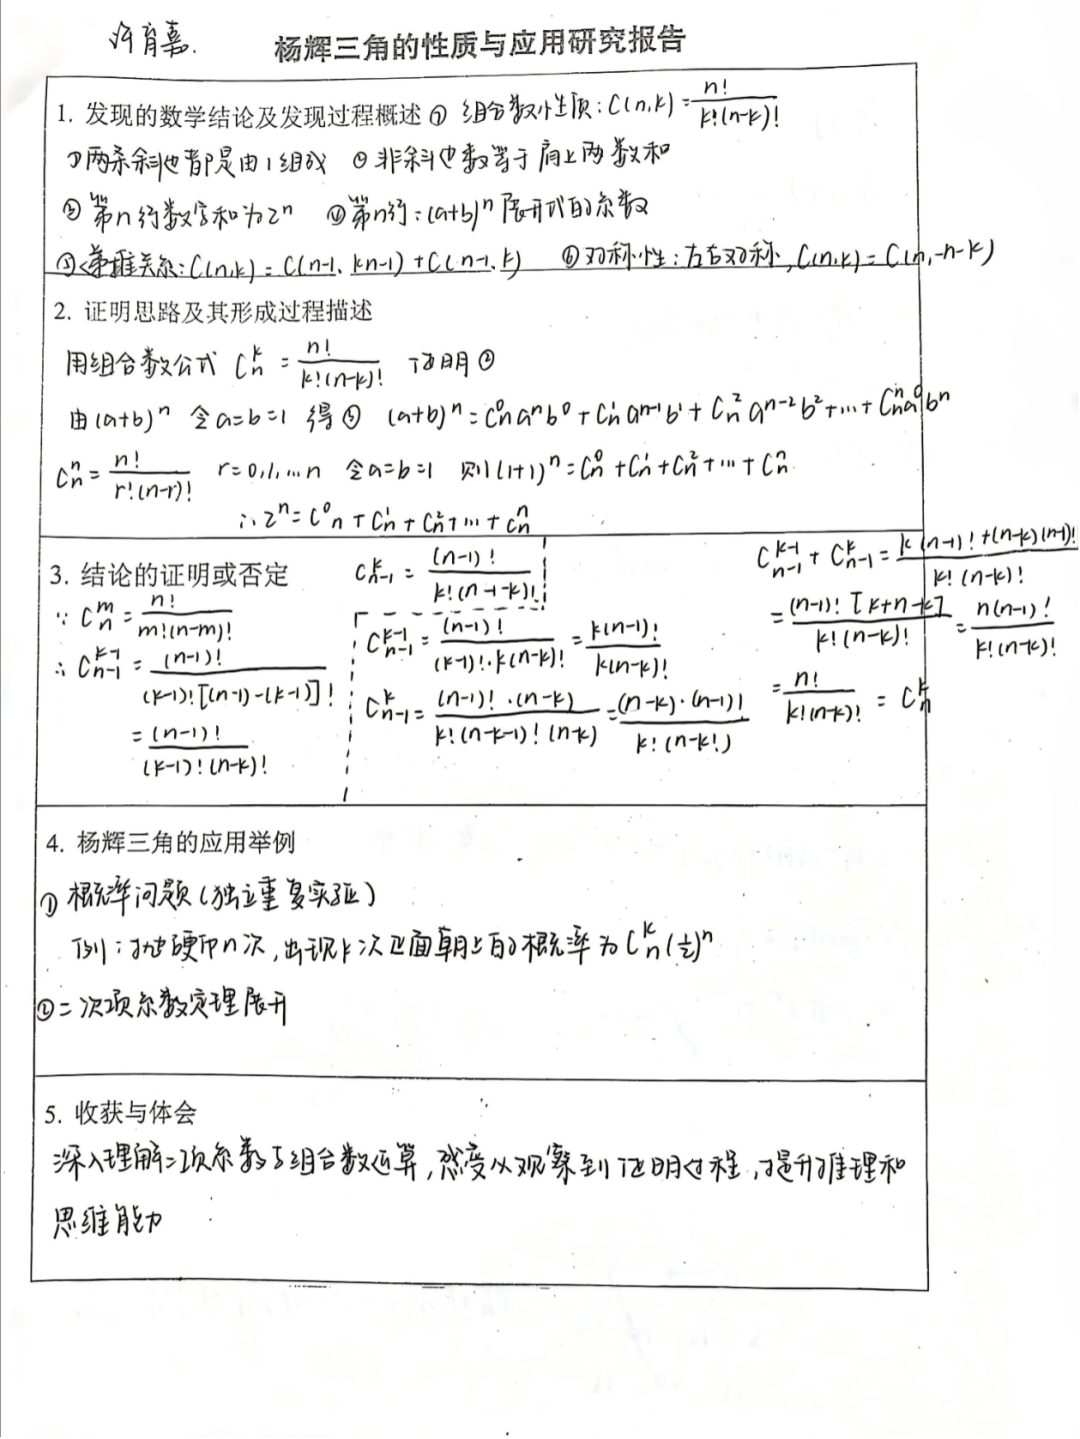 许育嘉.
杨辉三角的性质与应用研究报告
1. 发现的数学结论及发现过程概述 ⑦ 组合数性质: C(n,k) = n!/k!(n-k)!
①两条斜边都是由1组成 ② 非斜边数等于肩上两数和
③ 第n行数字和为2ⁿ ④第n行: (a+b)ⁿ展开式的系数
⑤ 递推关系: C(n,k) = C(n-1, kn-1) + C(n-1, k) ⑥对称性: 左右对称, C(n,k) = C(n,-n-k)
2. 证明思路及其形成过程描述
用组合数公式 Cₙᵏ = n!/k!(n-k)! 证明②
由(a+b)ⁿ 令a=b=1 得③ (a+b)ⁿ = Cₙ⁰aⁿb⁰ + Cₙ¹aⁿ⁻¹b¹ + Cₙ²aⁿ⁻²b² + … + Cₙⁿa⁰bⁿ
Cₙⁿ = n!/r!(n-r)! r=0,1,…n 令a=b=1 则(1+1)ⁿ = Cₙ⁰ + Cₙ¹ + Cₙ² + … + Cₙⁿ
∴ 2ⁿ = C⁰ₙ + Cₙ¹ + Cₙ² + … + Cₙⁿ
3. 结论的证明或否定
∵ Cₙᵐ = n!/m!(n-m)!
∴ Cₙ₋₁ᵏ⁻¹ = (n-1)!/(k-1)![(n-1)-(k-1)]!
= (n-1)!/(k-1)!(n-k)!
Cₙ₋₁ᵏ = (n-1)!/k!(n-1-k)!
Cₙ₋₁ᵏ⁻¹ = (n-1)!/(k-1)!·k(n-k)! = k(n-1)!/k(n-k)!
Cₙ₋₁ᵏ = (n-1)!·(n-k)/k!(n-k-1)!(n-k) = (n-k)·(n-1)!/k!(n-k!)
Cₙ₋₁ᵏ⁻¹ + Cₙ₋₁ᵏ = k(n-1)!+(n-k)(n-1)!/k!(n-k)!
= (n-1)![k+n-k]/k!(n-k)! = n(n-1)!/k!(n-k)!
= n!/k!(n-k)! = Cₙᵏ
4. 杨辉三角的应用举例
① 概率问题(独立重复实验)
例: 抛硬币n次, 出现k次正面朝上的概率为Cₙᵏ(½)ⁿ
②二次项系数定理展开
5. 收获与体会
深入理解二项系数与组合数运算, 感受从观察到证明过程, 提升推理和
思维能力